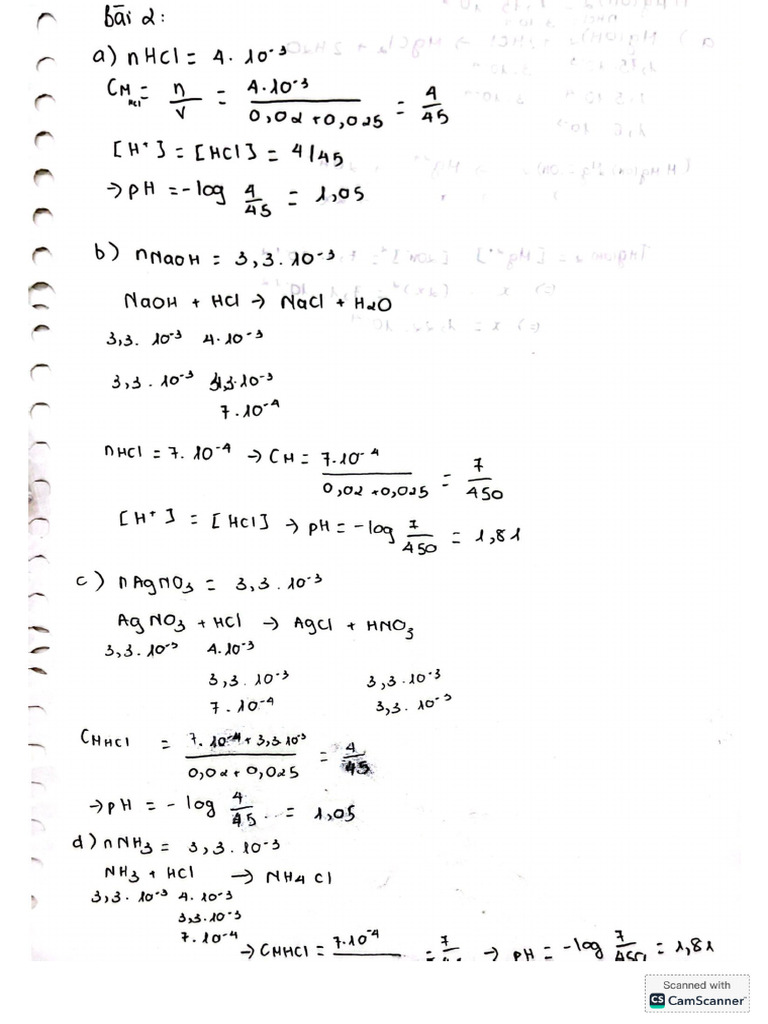 Bài 2:
a) nHCl = 4. 10⁻³
CM HCl = n/V = 4.10⁻³/(0,02 + 0,025) = 4/45
[H⁺] = [HCl] = 4/45
→ pH = -log 4/45 = 1,05
b) nNaOH = 3,3. 10⁻³
NaOH + HCl → NaCl + H2O
3,3. 10⁻³ 4. 10⁻³
3,3. 10⁻³ 3,3.10⁻³
7. 10⁻⁴
nHCl = 7. 10⁻⁴ → CM = 7.10⁻⁴/(0,02 + 0,025) = 7/450
[H⁺] = [HCl] → pH = -log 7/450 = 1,81
c) nAgNO3 = 3,3. 10⁻³
AgNO3 + HCl → AgCl + HNO3
3,3. 10⁻³ 4. 10⁻³
3,3. 10⁻³ 3,3. 10⁻³
7. 10⁻⁴ 3,3. 10⁻³
CMHCl = (7. 10⁻⁴ + 3,3. 10⁻³)/(0,02 + 0,025) = 4/45
→ pH = - log 4/45 = 1,05
d) nNH3 = 3,3. 10⁻³
NH3 + HCl → NH4Cl
3,3. 10⁻³ 4. 10⁻³
3,3. 10⁻³
7. 10⁻⁴ → CMHCl = 7.10⁻⁴ = 7 → pH = -log 7/450 = 1,81
Scanned with
CS CamScanner